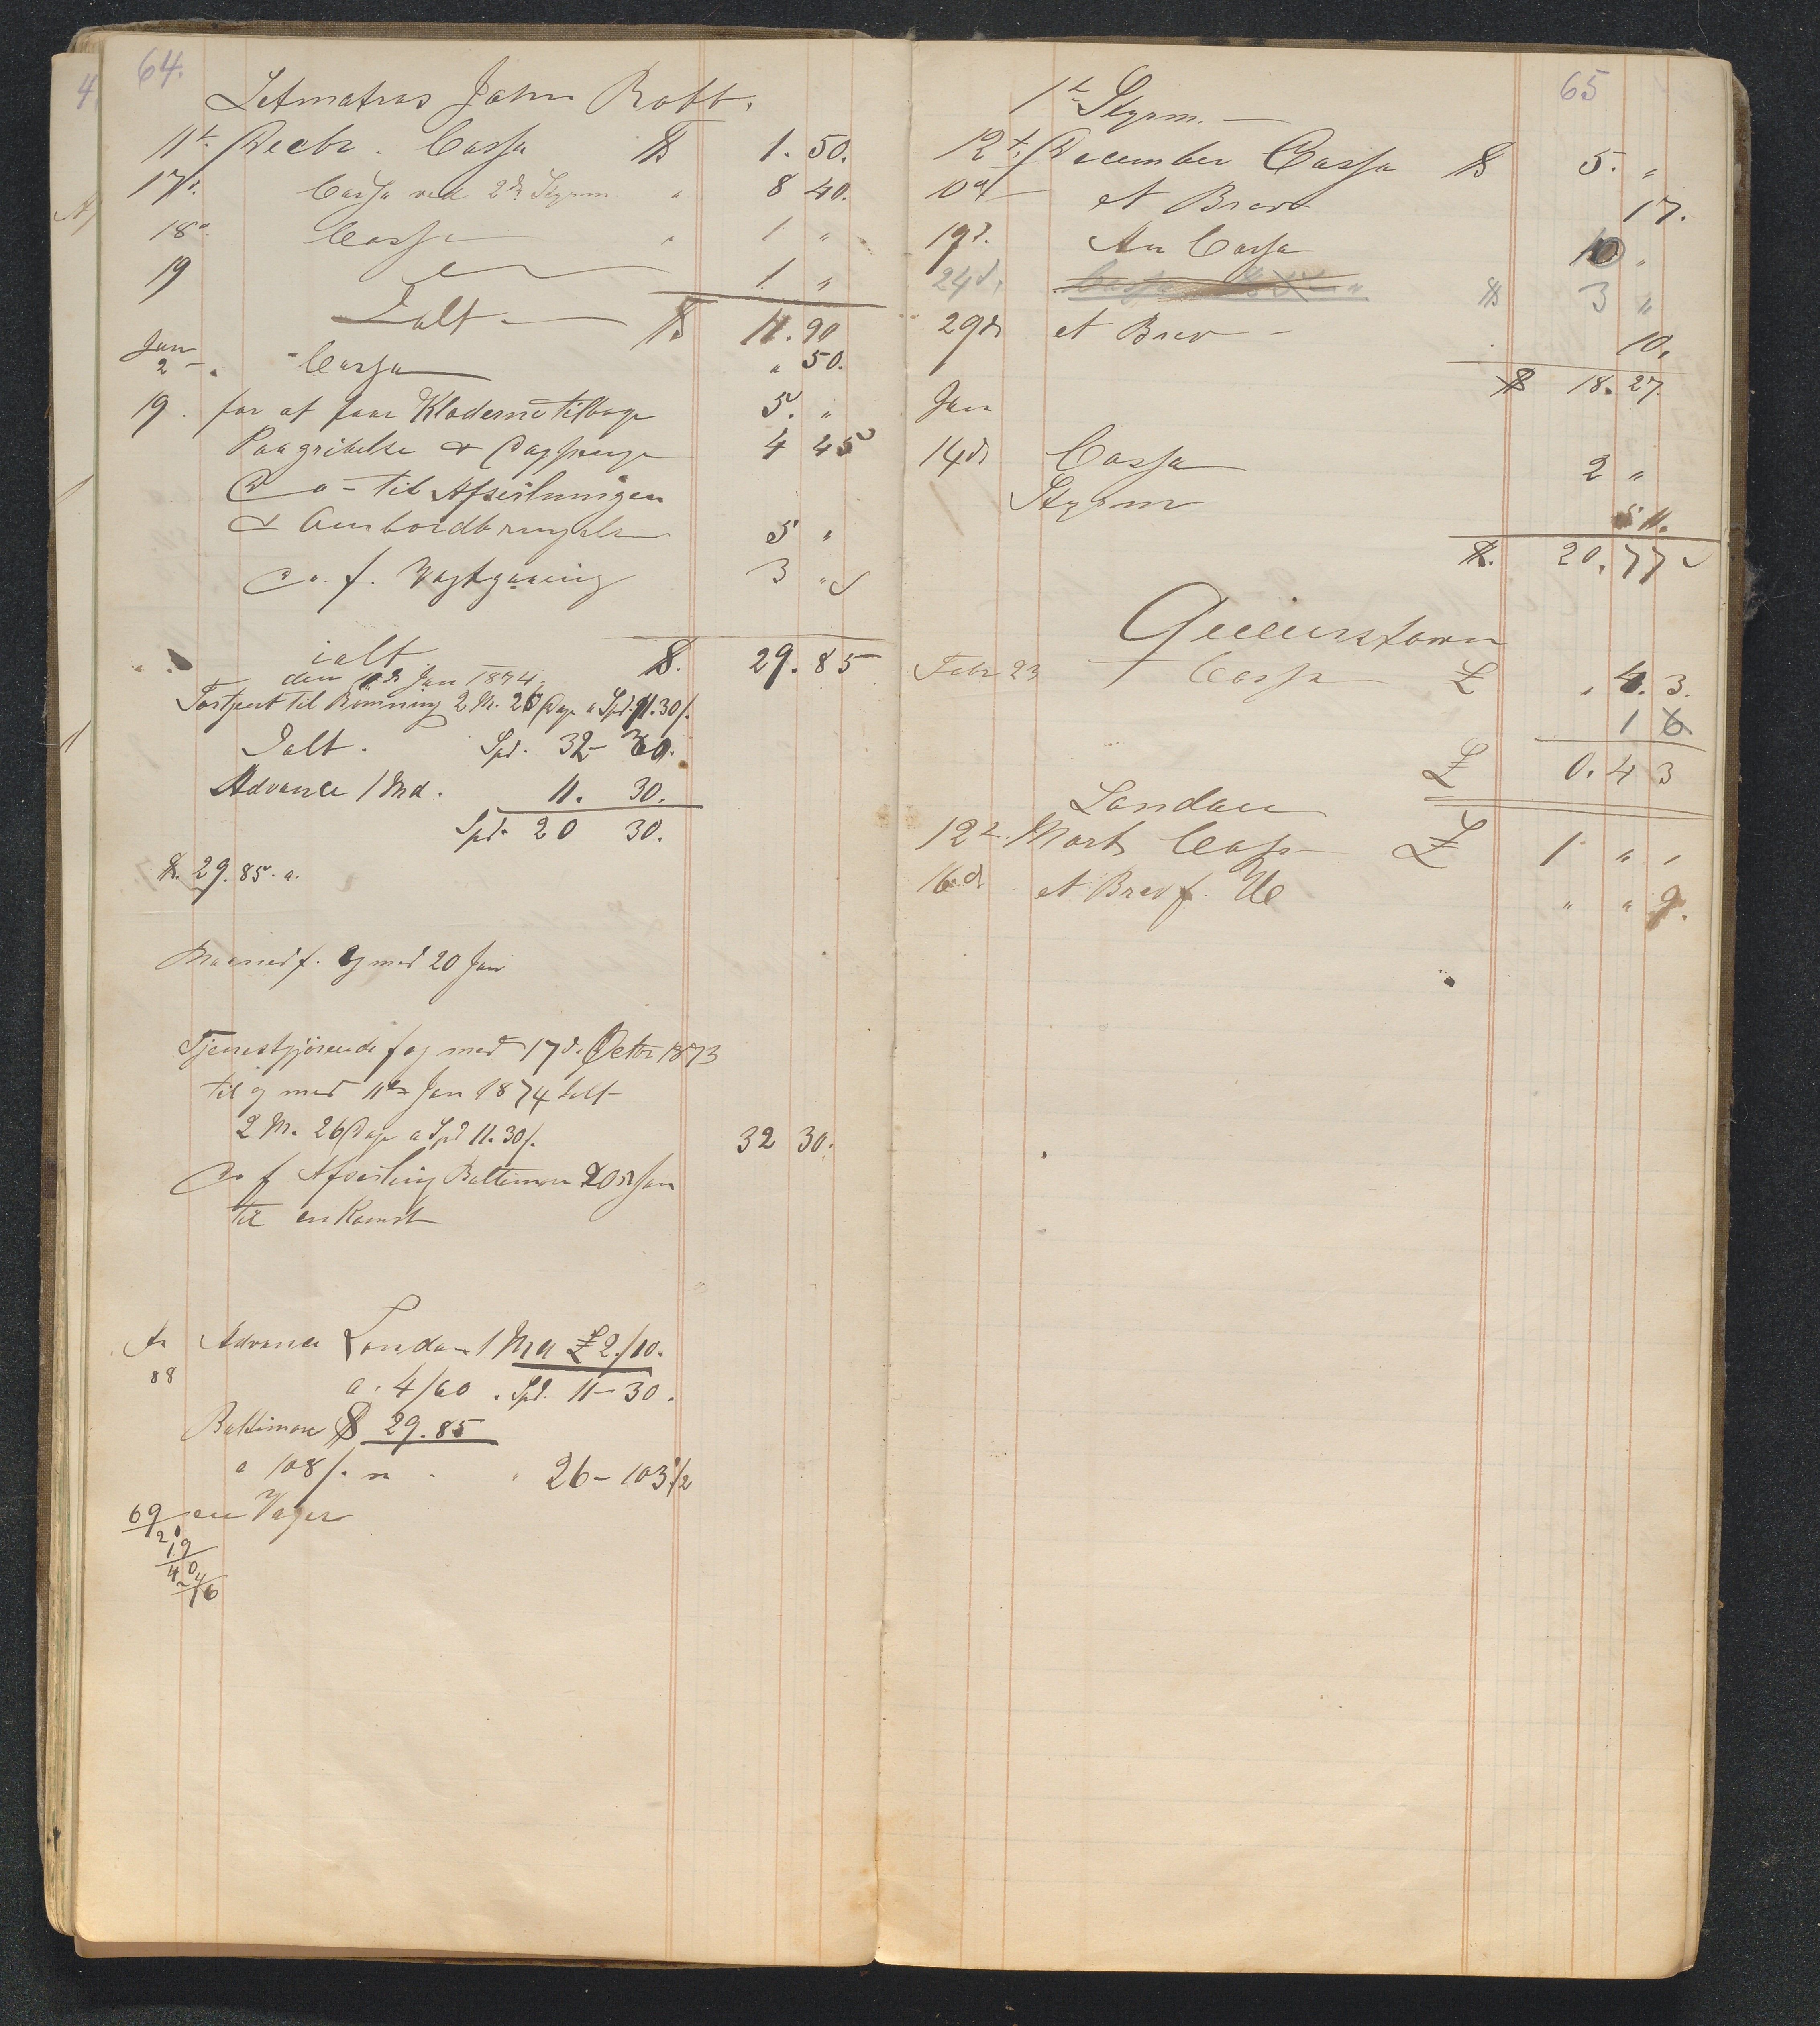 64.
Letmatros John Robb.
11t. Decbr. Cassa $ 1. 50.
17d. Cassa ved 2d Styrm. " 8 40.
18d. Cassa " 1 "
19 1 "
Ialt $ 11. 90
Jan
2 - Cassa " 50.
19. for at faae Kladerne tilbage 5. "
Paagribelse & 4 45
Do - til Afseilningen
& Ombordbringelse 5 "
Do. f. Vagtgaaing 3 "
ialt $. 29. 85
den Jan 1874.
Fortjent til Rømning 2 M. 26 Dage a Spd. 11.30/.
Ialt. Spd. 32 - 30.
Advance 1 Md. 11. 30.
Spd. 20 30.
$. 29. 85. a.
Maaned f. og med 20 Jan
Tjenestgjørende f og med 17d. Octbr 1873
til og med 11te Jan 1874 Ialt
2 M. 26 Dage a Spd 11. 30/. 32 30.
Do f Afseiling Baltimore 20d Jan
til ankomst
Advance London 1 Md £ 2./10.
88
a. 4/60. Spd. 11 - 30.
Baltimore $ 29. 85
a 108/. 26 - 103 1/2
69
65
1t Styrm. -
12t. December Cassa $ 5. "
et Brev 17.
19d. An Cassa 10 "
24d. Cassa $ 3 "
29d et Brev - 10.
$ 18. 27.
Jan
14d Cassa 2 "
Styrm
$. 20. 77
Queenstown
Febr 23 Cassa £ " 4. 3.
1 6
£ 0. 4 3
London
12d. Marts Cassa £ 1 " "
16d. et Brev f. " " 9.